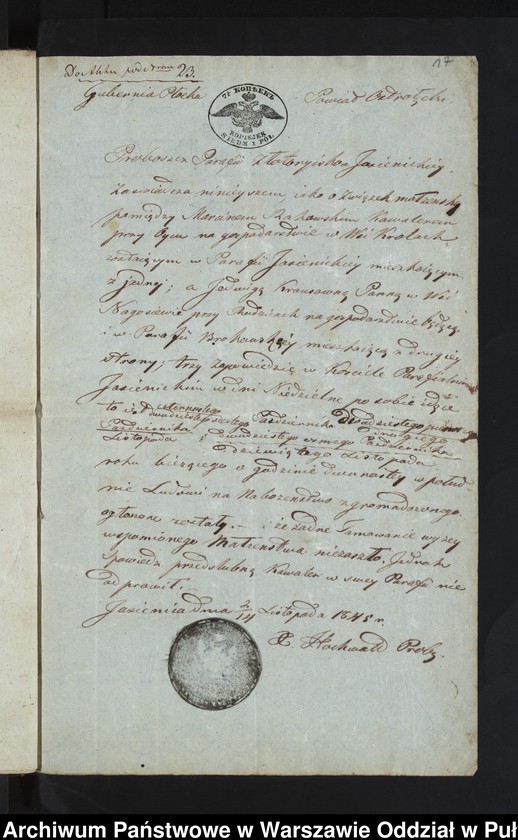 Do Aktu pod Nrem 23.
17
Gubernia Płocka
7½ КОПѢЕКЪ
KOPIEJEK
SIEDM I PÓŁ
Powiat Ostrołęcki.
Proboszcz Parafii Jasienickiey
Zaświadcza ninieyszem, jako o związek małżeński
pomiędzy Marcinem Rakowskim Kawalerem
przy Oycu na gospodarstwie w Wsi Krolach
zostaiącym w Parafii Jasienickiey mieszkaiącym
z jedney; a Jadwigą Krauzowną Panną w Wsi
Nagoszewie przy Rodzicach na gospodarstwie będącą
i w Parafii Brokowskiey mieszkaiącą z drugiey
strony; trzy zapowiedzie w Kościele Parafialnym
Jasienickim w dni Niedzielne po sobie idące
to jest Października
Października
Listopada i dwudziestego osmego Października
dziewiątego Listopada
roku bieżącego o godzinie dwunastey w połud-
nie Ludowi na Nabożeństwo zgromadzonego
ogłoszone zostały. – i że żadne Tamowanie wyzey
wspomnionego Małżenstwa niezaszło. Jednak
spowiedz przedslubną Kawaler w swey Parafii nie
odprawił.
Jasienica dnia Listopada 1845 r.
X. Hochwald Prob.
Archiwum Państwowe w Warszawie Oddział w Puł